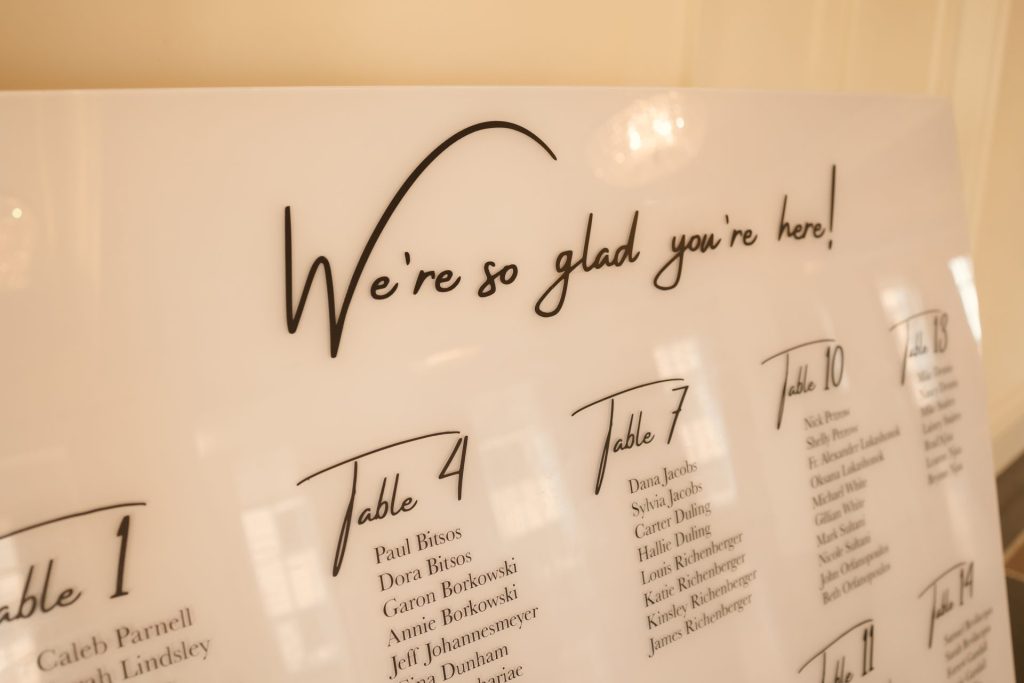 We're so glad you're here!
able 1
Caleb Parnell
rah Lindsley
Table 4
Paul Bitsos
Dora Bitsos
Garon Borkowski
Annie Borkowski
Jeff Johannesmeyer
Gina Dunham
hariae
Table 7
Dana Jacobs
Sylvia Jacobs
Carter Duling
Hallie Duling
Louis Richenberger
Katie Richenberger
Kinsley Richenberger
James Richenberger
Table 10
Nick Petrow
Shelly Petrow
Fr. Alexander Lukashonok
Oksana Lukashonok
Michael White
Gillian White
Mark Sultani
Nicole Sultani
John Orfanopoulos
Beth Orfanopoulos
Table 11
Table 13
Table 14